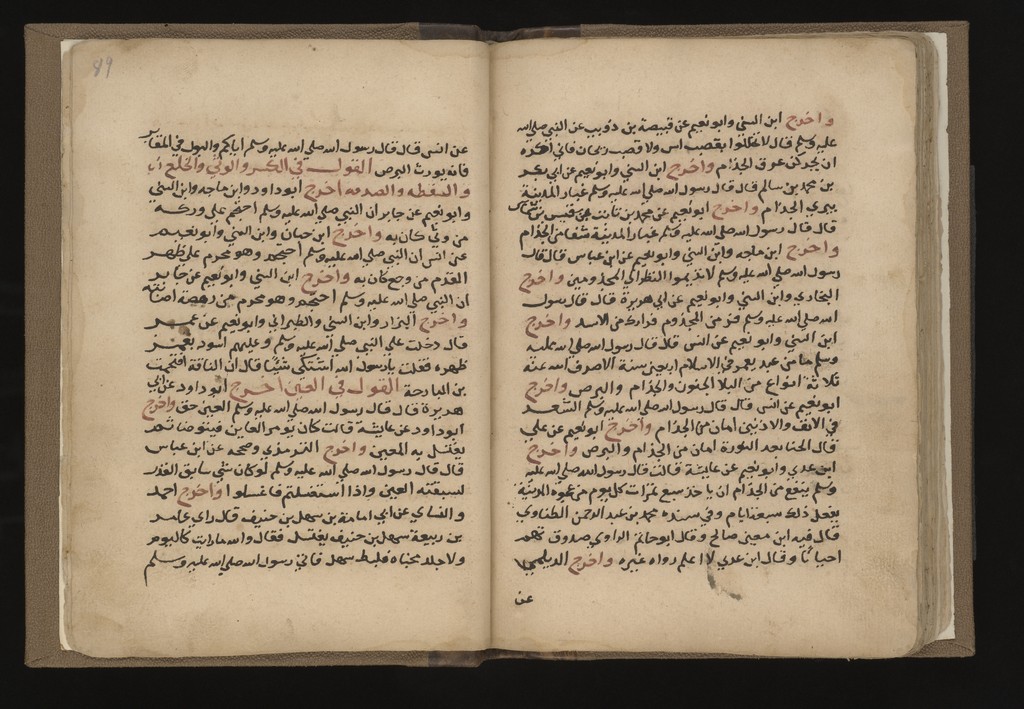 واخرج ابن السني وابو نعيم عن قبيصة بن ذويب عن النبي صلى الله
عليه وسلم قال لا تخللوا بقصب اس ولا قصب ريحان فاني اكره
ان يحركن عرق الجذام واخرج ابن السني وابو نعيم عن ابي بكر
بن محمد بن سالم قال قال رسول الله صلى الله عليه وسلم غبار المدينة
يبري الجذام واخرج ابو نعيم عن محمد بن ثابت بن قيس بن شماس
قال قال رسول الله صلى الله عليه وسلم غبار المدينة شفا من الجذام
واخرج ابن ماجه وابن السني وابو نعيم عن ابن عباس قال قال
رسول الله صلى الله عليه وسلم لا تديموا النظر الي المجذومين واخرج
البخاري وابن السني وابو نعيم عن ابي هريرة قال قال رسول
الله صلى الله عليه وسلم فر من المجذوم فرارك من الاسد واخرج
ابن السني وابو نعيم عن انس قال قال رسول الله صلى الله عليه
وسلم ما من عبد يعمر في الاسلام اربعين سنة الا صرف الله عنه
ثلاثة انواع من البلا الجنون والجذام والبرص واخرج
ابو نعيم عن انس قال قال رسول الله صلى الله عليه وسلم الشعر
في الانف والاذنين امان من الجذام واخرج ابو نعيم عن علي
قال الحنا بعد النورة امان من الجذام والبرص واخرج
ابن عدي وابو نعيم عن عايشة قالت قال رسول الله صلى الله عليه
وسلم ينفع من الجذام ان ياخذ سبع تمرات كل يوم من عجوة المدينة
يفعل ذلك سبعة ايام وفي سنده محمد بن عبد الرحمن الطفاوي
قال فيه ابن معين صالح وقال ابو حاتم الراوي صدوق يهم
احيانا وقال ابن عدي لا اعلم رواه غيره واخرج الديلمي
عن
89
عن انس قال قال رسول الله صلى الله عليه وسلم اياكم والبول في المقابر
فانه يورث البرص القول في الكسر والوثي والخلع
والسقطه والصدمه اخرج ابو داود وابن ماجه وابن السني
وابو نعيم عن جابر ان النبي صلى الله عليه وسلم احتجم علي وركه
من وثي كان به واخرج ابن حبان وابن السني وابو نعيم
عن انس ان النبي صلى الله عليه وسلم احتجم وهو محرم علي ظهر
القدم من وجع كان به واخرج ابن السني وابو نعيم عن جابر
ان النبي صلى الله عليه وسلم احتجم وهو محرم من رهصة اصابته
واخرج البزار وابن السني والطبراني وابو نعيم عن عمر
قال دخلت علي النبي صلى الله عليه وسلم وغليم اسود يغمز
ظهره فقلت يا رسول الله اشتكي شيئا قال ان الناقة اقتحمت
بي البارحة القول في العين اخرج ابو داود عن ابي
هريرة قال قال رسول الله صلى الله عليه وسلم العين حق واخرج
ابو داود عن عايشة قالت كان يومر العاين فيتوضا ثم
يغتسل به المعين واخرج الترمذي وصححه عن ابن عباس
قال قال رسول الله صلى الله عليه وسلم لو كان شي سابق القدر
لسبقته العين واذا استغسلتم فاغسلوا واخرج احمد
والنساي عن ابي امامة بن سهل بن حنيف قال راي عامر
بن ربيعة سهل بن حنيف يغتسل فقال والله ما رايت كاليوم
ولا جلد مخباه فلبط سهل فاتي رسول الله صلى الله عليه وسلم